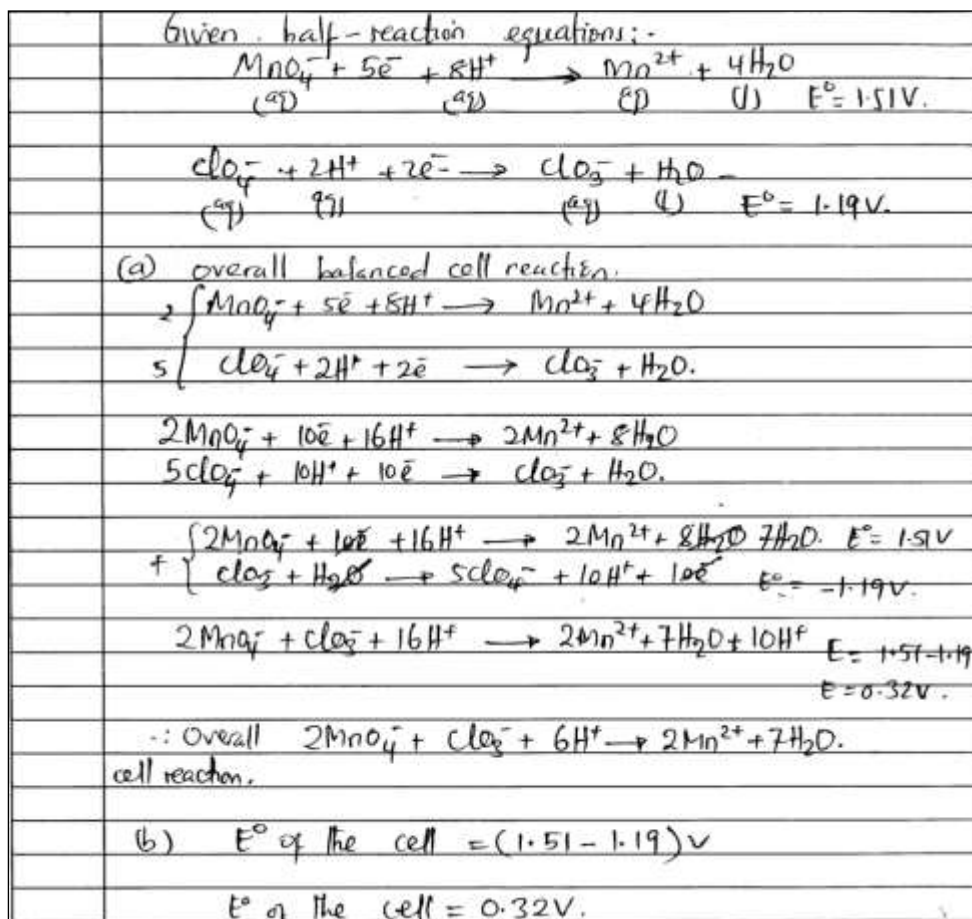 Given half-reaction equations:-
MnO₄⁻ + 5e̅ + 8H⁺ → Mn²⁺ + 4H₂O
(aq) (aq) (aq) (l) E° = 1.51V.
ClO₄⁻ + 2H⁺ + 2e̅ → ClO₃⁻ + H₂O -
(aq) (aq) (aq) (l) E° = 1.19V.
(a) overall balanced cell reaction.
2 { MnO₄⁻ + 5e̅ + 8H⁺ → Mn²⁺ + 4H₂O
5 { ClO₄⁻ + 2H⁺ + 2e̅ → ClO₃⁻ + H₂O.
2MnO₄⁻ + 10e̅ + 16H⁺ → 2Mn²⁺ + 8H₂O
5ClO₄⁻ + 10H⁺ + 10e̅ → ClO₃⁻ + H₂O.
+ { 2MnO₄⁻ + 10e̅ + 16H⁺ → 2Mn²⁺ + 8H₂O 7H₂O. E° = 1.51V
ClO₃⁻ + H₂O → 5ClO₄⁻ + 10H⁺ + 10e̅ E° = -1.19V.
2MnO₄⁻ + ClO₃⁻ + 16H⁺ → 2Mn²⁺ + 7H₂O + 10H⁺ E = 1.51-1.19
E = 0.32V.
∴ Overall 2MnO₄⁻ + ClO₃⁻ + 6H⁺ → 2Mn²⁺ + 7H₂O.
cell reaction.
(b) E° of the cell = (1.51 - 1.19) V
E° of the cell = 0.32V.